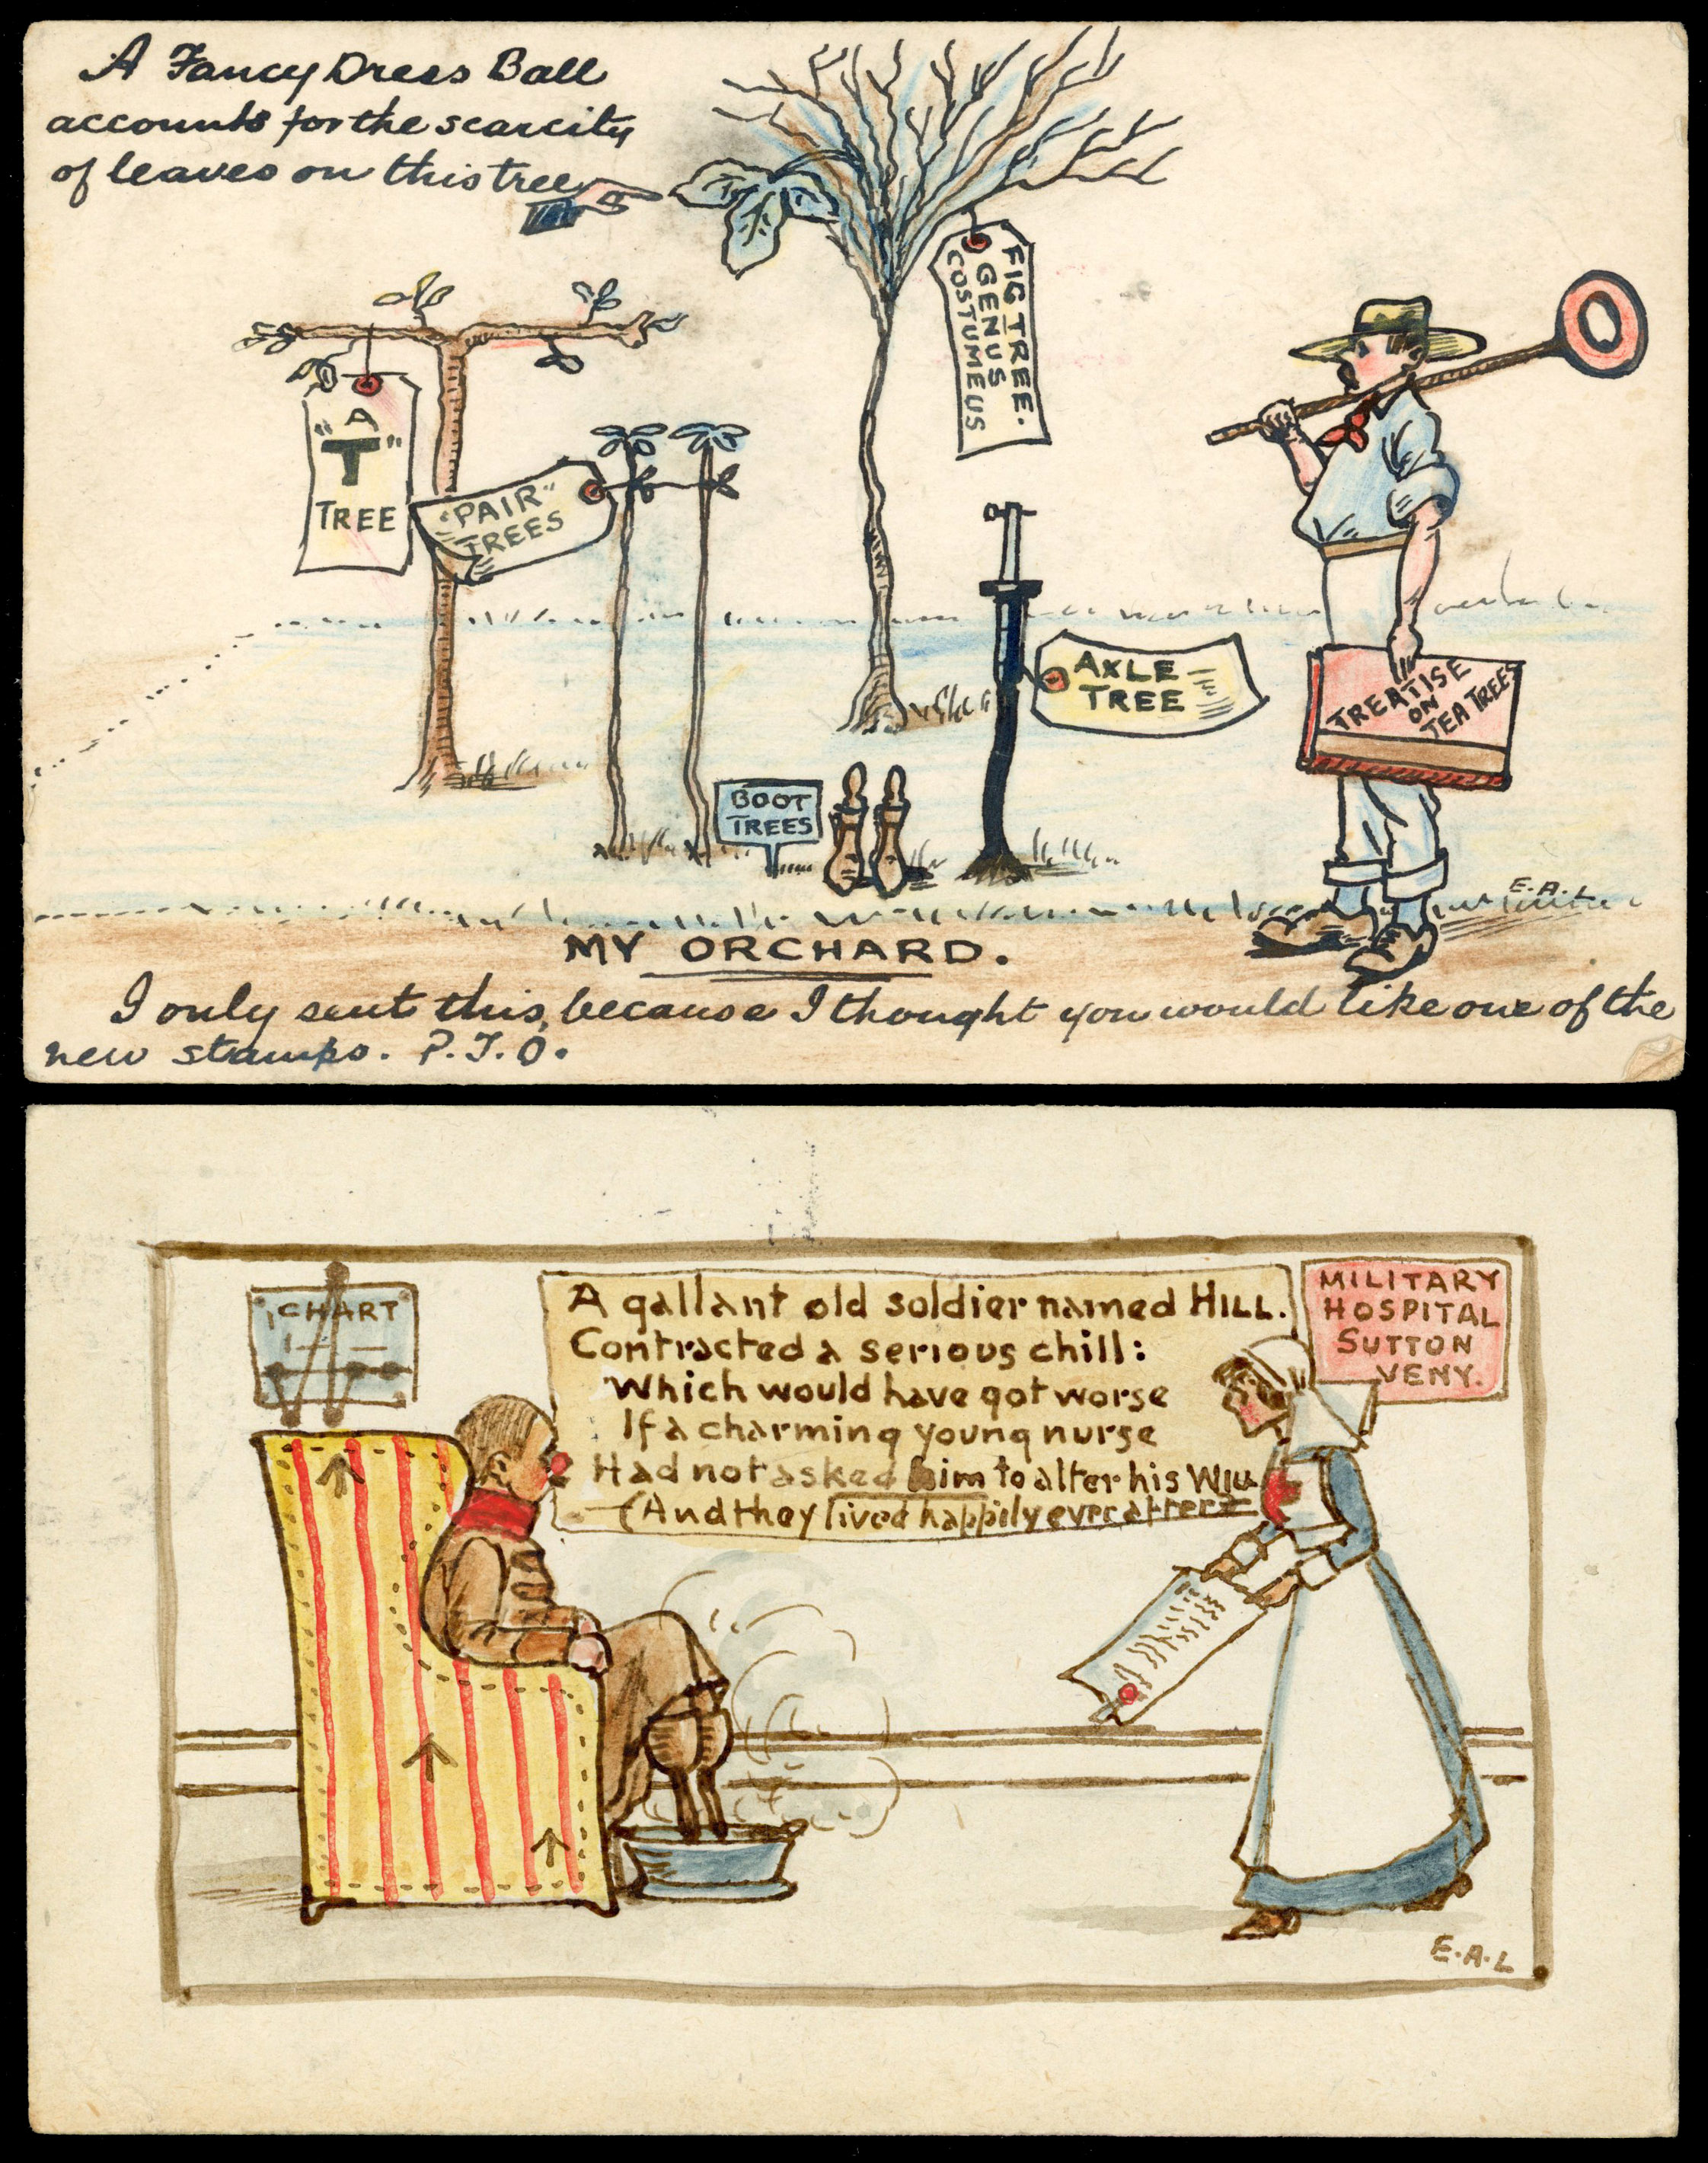 A Fancy Dress Ball
accounts for the scarcity
of leaves on this tree
FIG TREE.
GENUS
COSTUMEUS
"A
T"
TREE
"PAIR"
TREES
AXLE
TREE
BOOT
TREES
TREATISE
ON
TEA TREES
E.A.L
MY ORCHARD.
I only sent this, because I thought you would like one of the
new stamps. P.T.O.
CHART
A gallant old soldier named HILL.
Contracted a serious chill:
Which would have got worse
If a charming young nurse
Had not asked him to alter his WILL
(And they lived happily ever after
MILITARY
HOSPITAL
SUTTON
VENY.
E.A.L